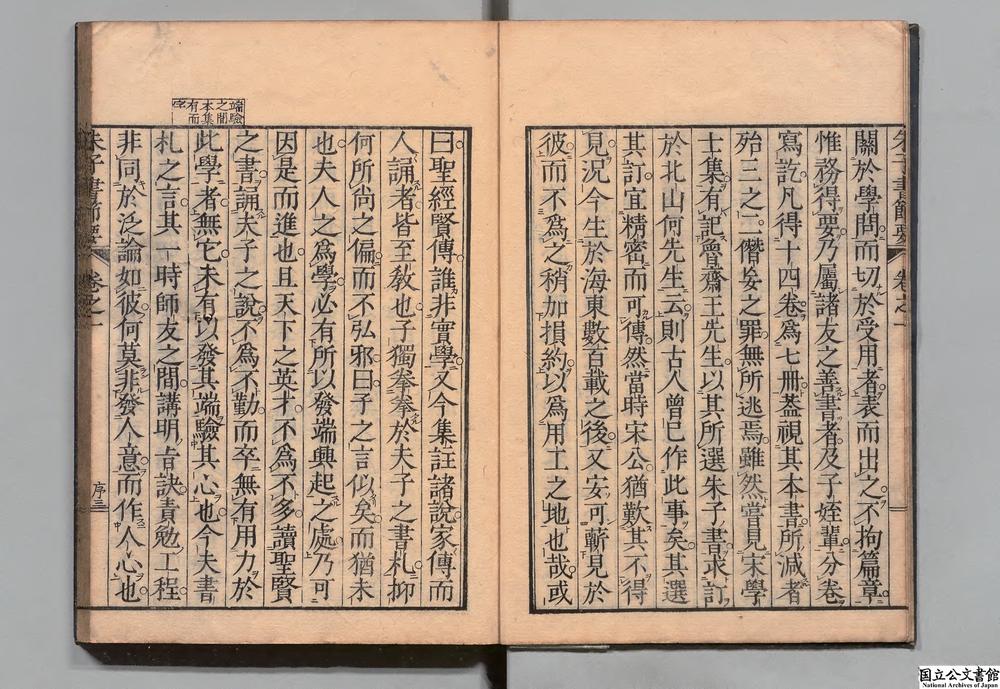 關於學問而切於受用者表而出之不拘篇章
惟務得要乃屬諸友之善書者及子姪輩分卷
寫訖凡得十四卷爲七冊蓋視其本書所減者
殆三之二僭妄之罪無所逃焉雖然嘗見宋學
士集有記魯齋王先生以其所選朱子書求訂
於北山何先生云則古人曾已作此事矣其選
其訂宜精密而可傳然當時宋公猶歎其不得
見況今生於海東數百載之後又安可蘄見於
彼而不爲之稍加損約以爲用工之地也哉或
朱子書節要 卷之一
端驗
之間
本集
有而
字
曰聖經賢傳誰非實學又今集註諸說家傳而
人誦者皆至敎也子獨拳拳於夫子之書札抑
何所尚之偏而不弘邪曰子之言似矣而猶未
也夫人之爲學必有所以發端興起之處乃可
因是而進也且天下之英才不爲不多讀聖賢
之書誦夫子之說不爲不勤而卒無有用力於
此學者無它未有以發其端驗其心也今夫書
札之言其一時師友之間講明旨訣責勉工程
非同於泛論如彼何莫非發人意而作人心也
朱子書節要 卷之一 序三
国立公文書館
National Archives of Japan